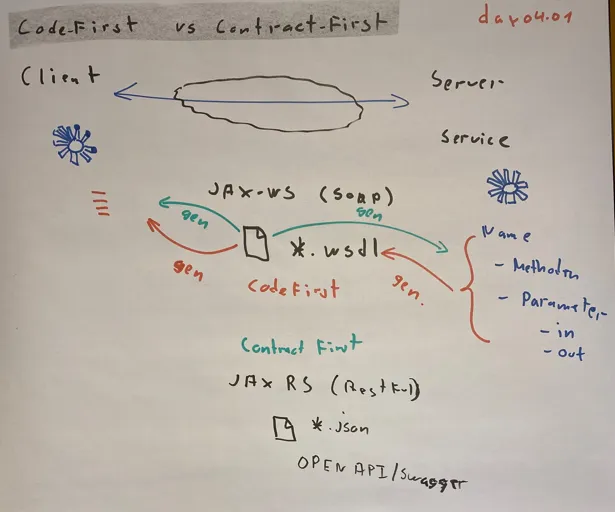 Code-First vs Contract-First
day04.01
Client
Server
Service
JAX-WS (SOAP)
gen
gen
*.wsdl
gen
gen.
CodeFirst
Name
- Methoden
- Parameter
- in
- out
Contract First
JAX RS (Restful)
*.json
OPEN API/Swagger